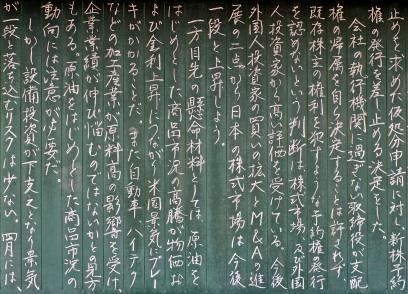 止めを求めた仮処分申請に対し、新株予約
権の発行を差し止める決定をした。
会社の執行機関に過ぎない取締役が支配
権の帰属を自ら決定することは許されず、
既存株主の権利を犯すような予約権の発行
を認めないという判断は株式市場、及び外国
人投資家から高い評価を受けている。今後、
外国人投資家の買いの拡大とM&Aの進
展の二点から日本の株式市場は今後
一段と上昇しよう。
一方目先の懸念材料としては、原油を
はじめとした商品市況の高騰が物価お
よび金利上昇につながり、米国景気にブレー
キがかかること。また自動車、ハイテク
などの加工産業が原料高の影響を受け、
企業業績が伸び悩むのではないかとの見方
もある。原油をはじめとした商品市況の
動向には注意が必要だ。
しかし設備投資が下支えとなり景気
が一段と落ち込むリスクは少ない。四月には、